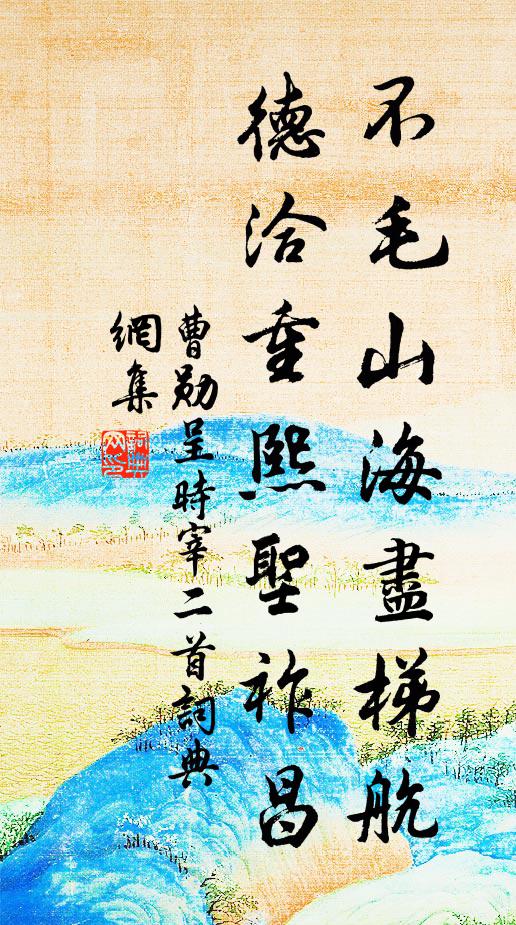 不毛山海盡梯航
德洽重熙聖祚昌
曹勛呈時宰二首詞典
網集